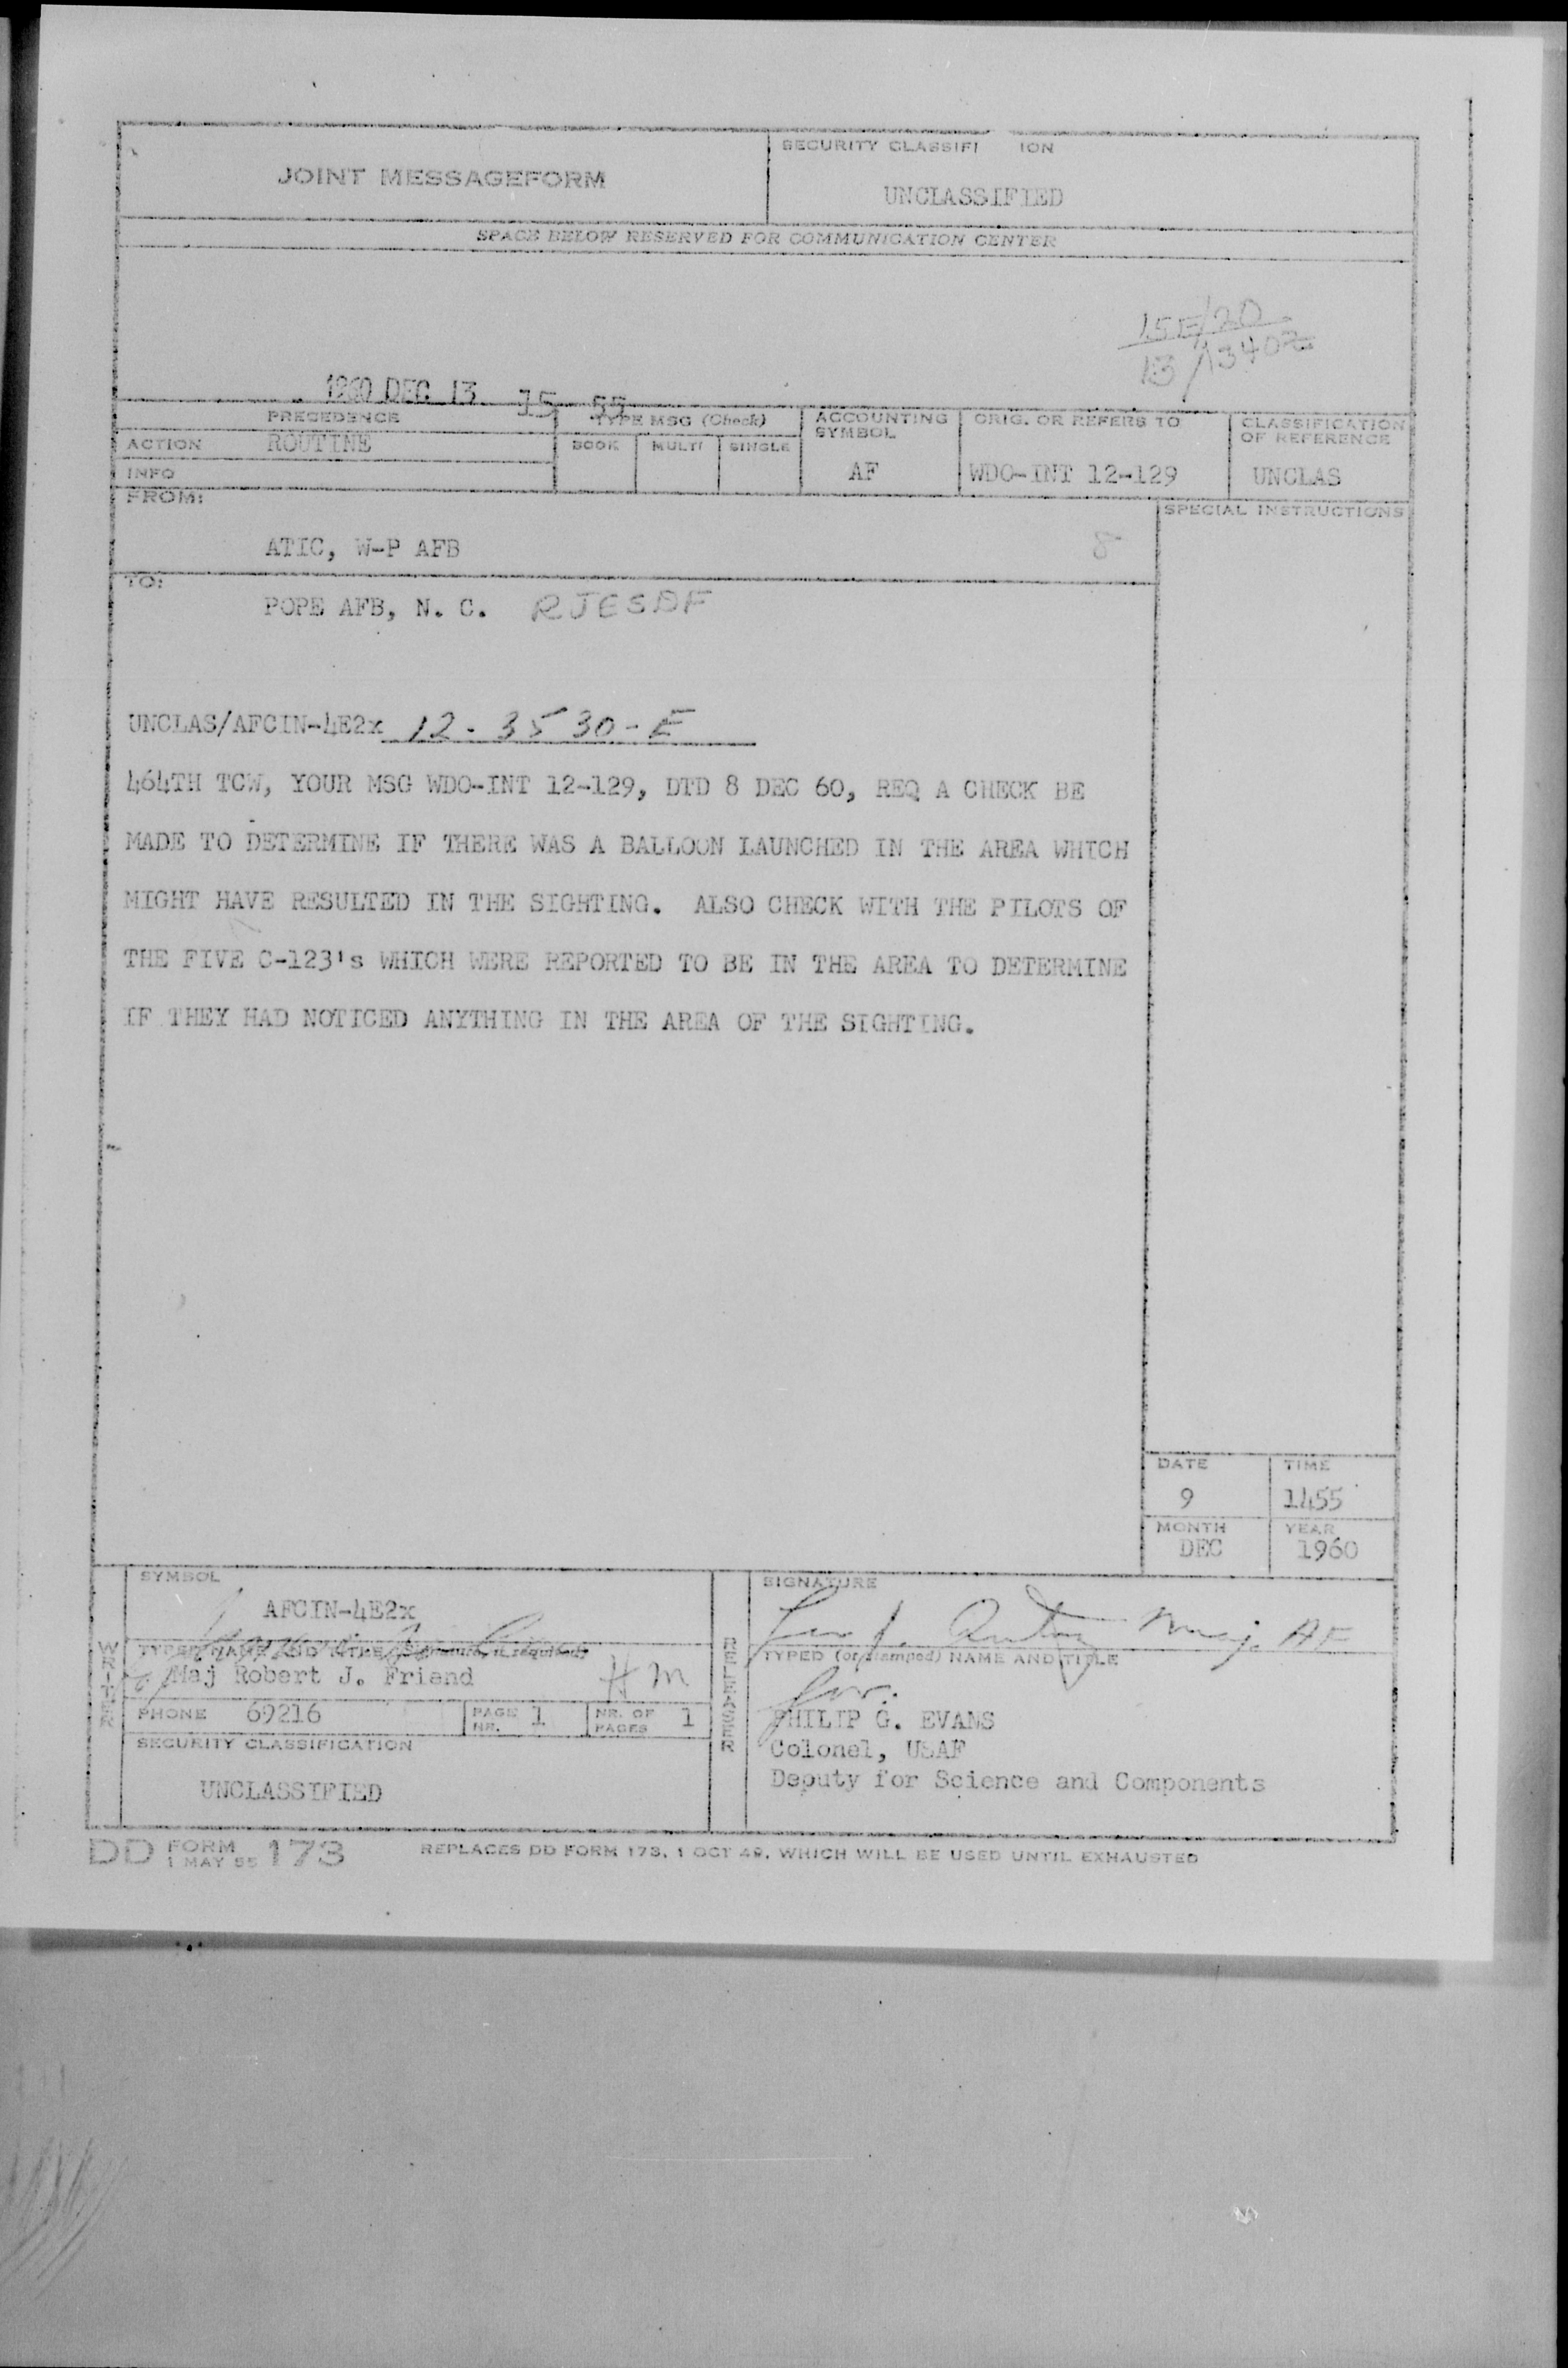 JOINT MESSAGEFORM
SECURITY CLASSIFI ION
UNCLASSIFIED
SPACE BELOW RESERVED FOR COMMUNICATION CENTER
15E/20
13/1340Z
1960 DEC 13 15 55
PRECEDENCE
TYPE MSG (Check)
ACCOUNTING SYMBOL
ORIG. OR REFERS TO
CLASSIFICATION OF REFERENCE
ACTION ROUTINE
BOOK MULTI SINGLE
INFO
AF
WDO-INT 12-129
UNCLAS
FROM:
SPECIAL INSTRUCTIONS
ATIC, W-P AFB
TO:
POPE AFB, N. C. RJESDF
UNCLAS/AFCIN-4E2x 12-3530-E
464TH TCW, YOUR MSG WDO-INT 12-129, DTD 8 DEC 60, REQ A CHECK BE
MADE TO DETERMINE IF THERE WAS A BALLOON LAUNCHED IN THE AREA WHICH
MIGHT HAVE RESULTED IN THE SIGHTING. ALSO CHECK WITH THE PILOTS OF
THE FIVE C-123's WHICH WERE REPORTED TO BE IN THE AREA TO DETERMINE
IF THEY HAD NOTICED ANYTHING IN THE AREA OF THE SIGHTING.
DATE TIME
9 1455
MONTH YEAR
DEC 1960
WRITER
SYMBOL
AFCIN-4E2x
TYPED NAME AND TITLE (Signature, if required)
Maj Robert J. Friend HM
PHONE 69216
PAGE NR. 1
NR. OF PAGES 1
SECURITY CLASSIFICATION
UNCLASSIFIED
RELEASER
SIGNATURE
Maj. AF
TYPED (or stamped) NAME AND TITLE
for:
PHILIP G. EVANS
Colonel, USAF
Deputy for Science and Components
DD FORM 1 MAY 55 173
REPLACES DD FORM 173, 1 OCT 49, WHICH WILL BE USED UNTIL EXHAUSTED